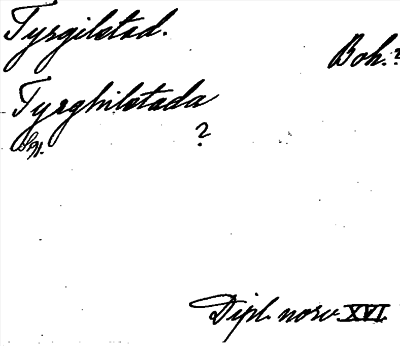 Tyrgilstad.
Boh.?
Tyrghilstada
?
Dipl. norv. XVI.